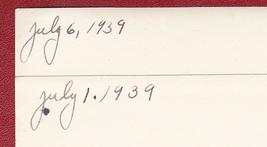 July 6, 1939
July 1. 1939